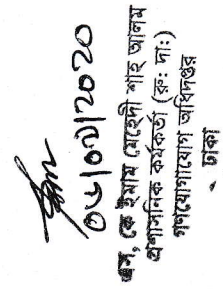 ০৬/০৭/২০২০
এস, কে ইমাম মেহেদী শাহ আলম
প্রশাসনিক কর্মকর্তা (রু: দা:)
গণযোগাযোগ অধিদপ্তর
ঢাকা